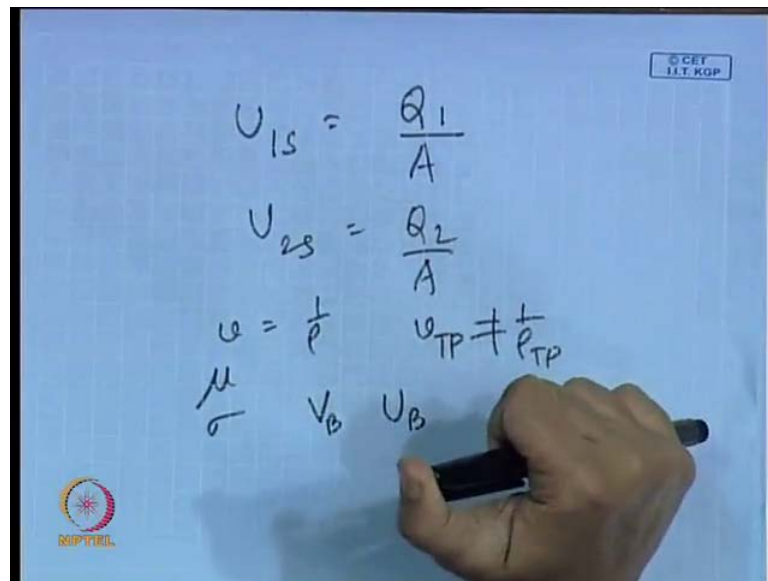 © CET
I.I.T. KGP
U₁ₛ = Q₁/A
U₂ₛ = Q₂/A
υ = 1/ρ υ_TP ≠ 1/ρ_TP
μ
σ V_B U_B
NPTEL